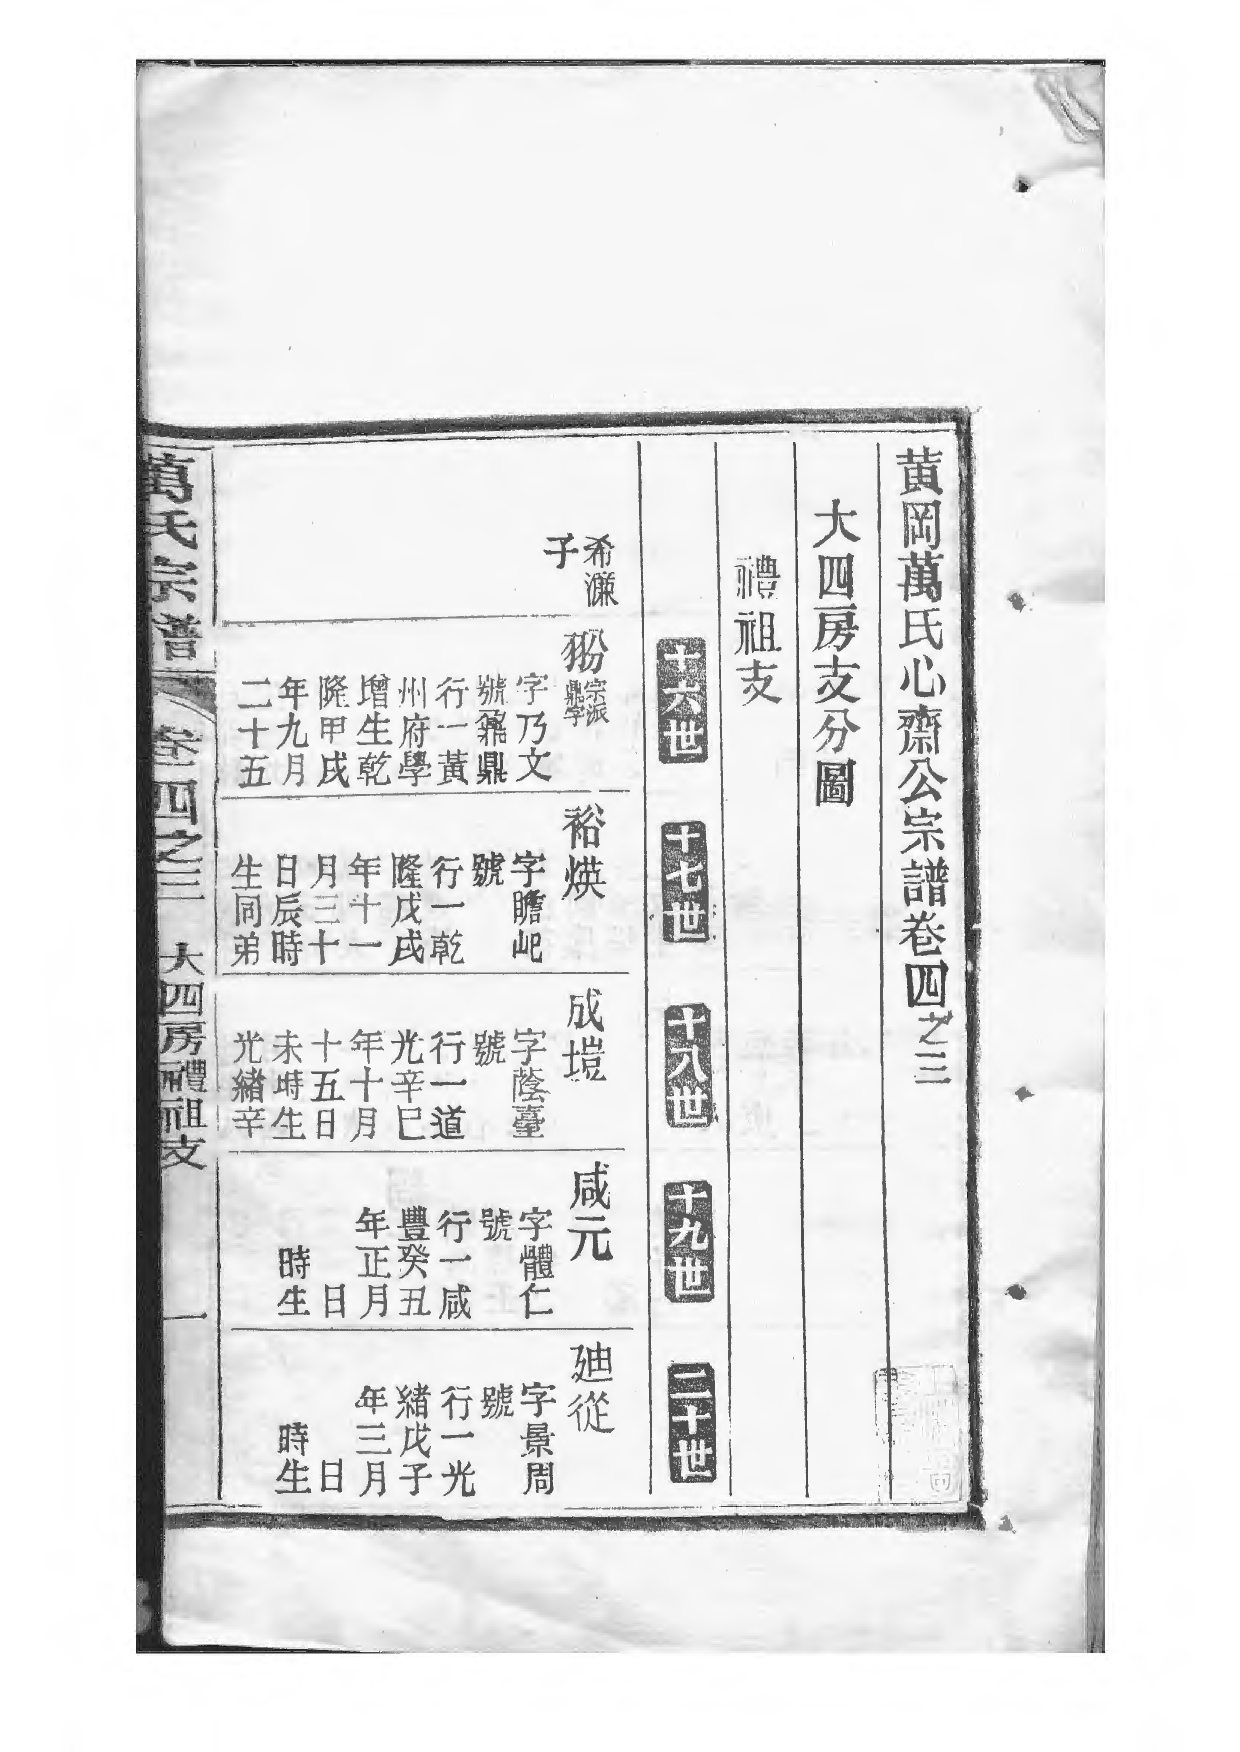 黃岡萬氏心齋公宗譜卷四之三
大四房支分圖
禮祖支
十六世
十七世
十八世
十九世
二十世
希濂
子
㺹
宗派
鼎學
字乃文
號鼐鼎
行一黃
州府學
增生乾
隆甲戌
年九月
二十五
裕煐
字瞻屺
號
行一乾
隆戊戌
年十一
月三十
日辰時
生同弟
成塏
字蔭臺
號
行一道
光辛巳
年十月
十五日
未時生
光緒辛
咸元
字體仁
號
行一咸
豐癸丑
年正月
日
時生
廸從
字景周
號
行一光
緒戊子
年三月
日
時生
萬氏宗譜
卷四之三
大四房禮祖支
一